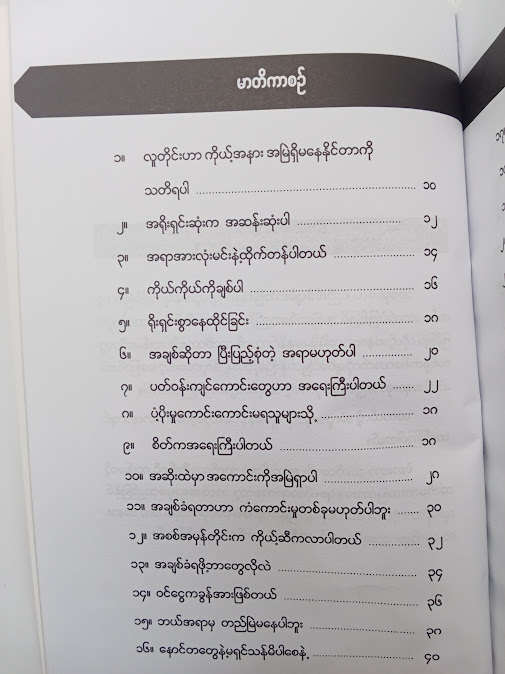 မာတိကာစဉ်
၁။ လူတိုင်းဟာ ကိုယ့်အနား အမြဲရှိမနေနိုင်တာကို
သတိရပါ ........................................................ ၁၀
၂။ အရိုးရှင်းဆုံးက အဆန်းဆုံးပါ ........................... ၁၂
၃။ အရာအားလုံးမင်းနဲ့ထိုက်တန်ပါတယ် ...................... ၁၄
၄။ ကိုယ်ကိုယ်ကိုချစ်ပါ .......................................... ၁၆
၅။ ရိုးရှင်းစွာနေထိုင်ခြင်း ......................................... ၁၈
၆။ အချစ်ဆိုတာ ပြီးပြည့်စုံတဲ့ အရာမဟုတ်ပါ ............. ၂၀
၇။ ပတ်ဝန်းကျင်ကောင်းတွေဟာ အရေးကြီးပါတယ် ...... ၂၂
၈။ ပံ့ပိုးမှုကောင်းကောင်းမရသူများသို့ ....................... ၁၈
၉။ စိတ်ကအရေးကြီးပါတယ် .................................. ၁၈
၁၀။ အဆိုးထဲမှာ အကောင်းကိုအမြဲရှာပါ .................... ၂၈
၁၁။ အချစ်ခံရတာဟာ ကံကောင်းမှုတစ်ခုမဟုတ်ပါဘူး ...... ၃၀
၁၂။ အစစ်အမှန်တိုင်းက ကိုယ့်ဆီကလာပါတယ် ............. ၃၂
၁၃။ အချစ်ခံရဖို့ဘာတွေလိုလဲ ................................. ၃၄
၁၄။ ဝင်ငွေကခွန်အားဖြစ်တယ် ................................ ၃၆
၁၅။ ဘယ်အရာမှ တည်မြဲမနေပါဘူး .......................... ၃၈
၁၆။ နောင်တတွေနဲ့မရှင်သန်မိပါစေနဲ့ ......................... ၄၀